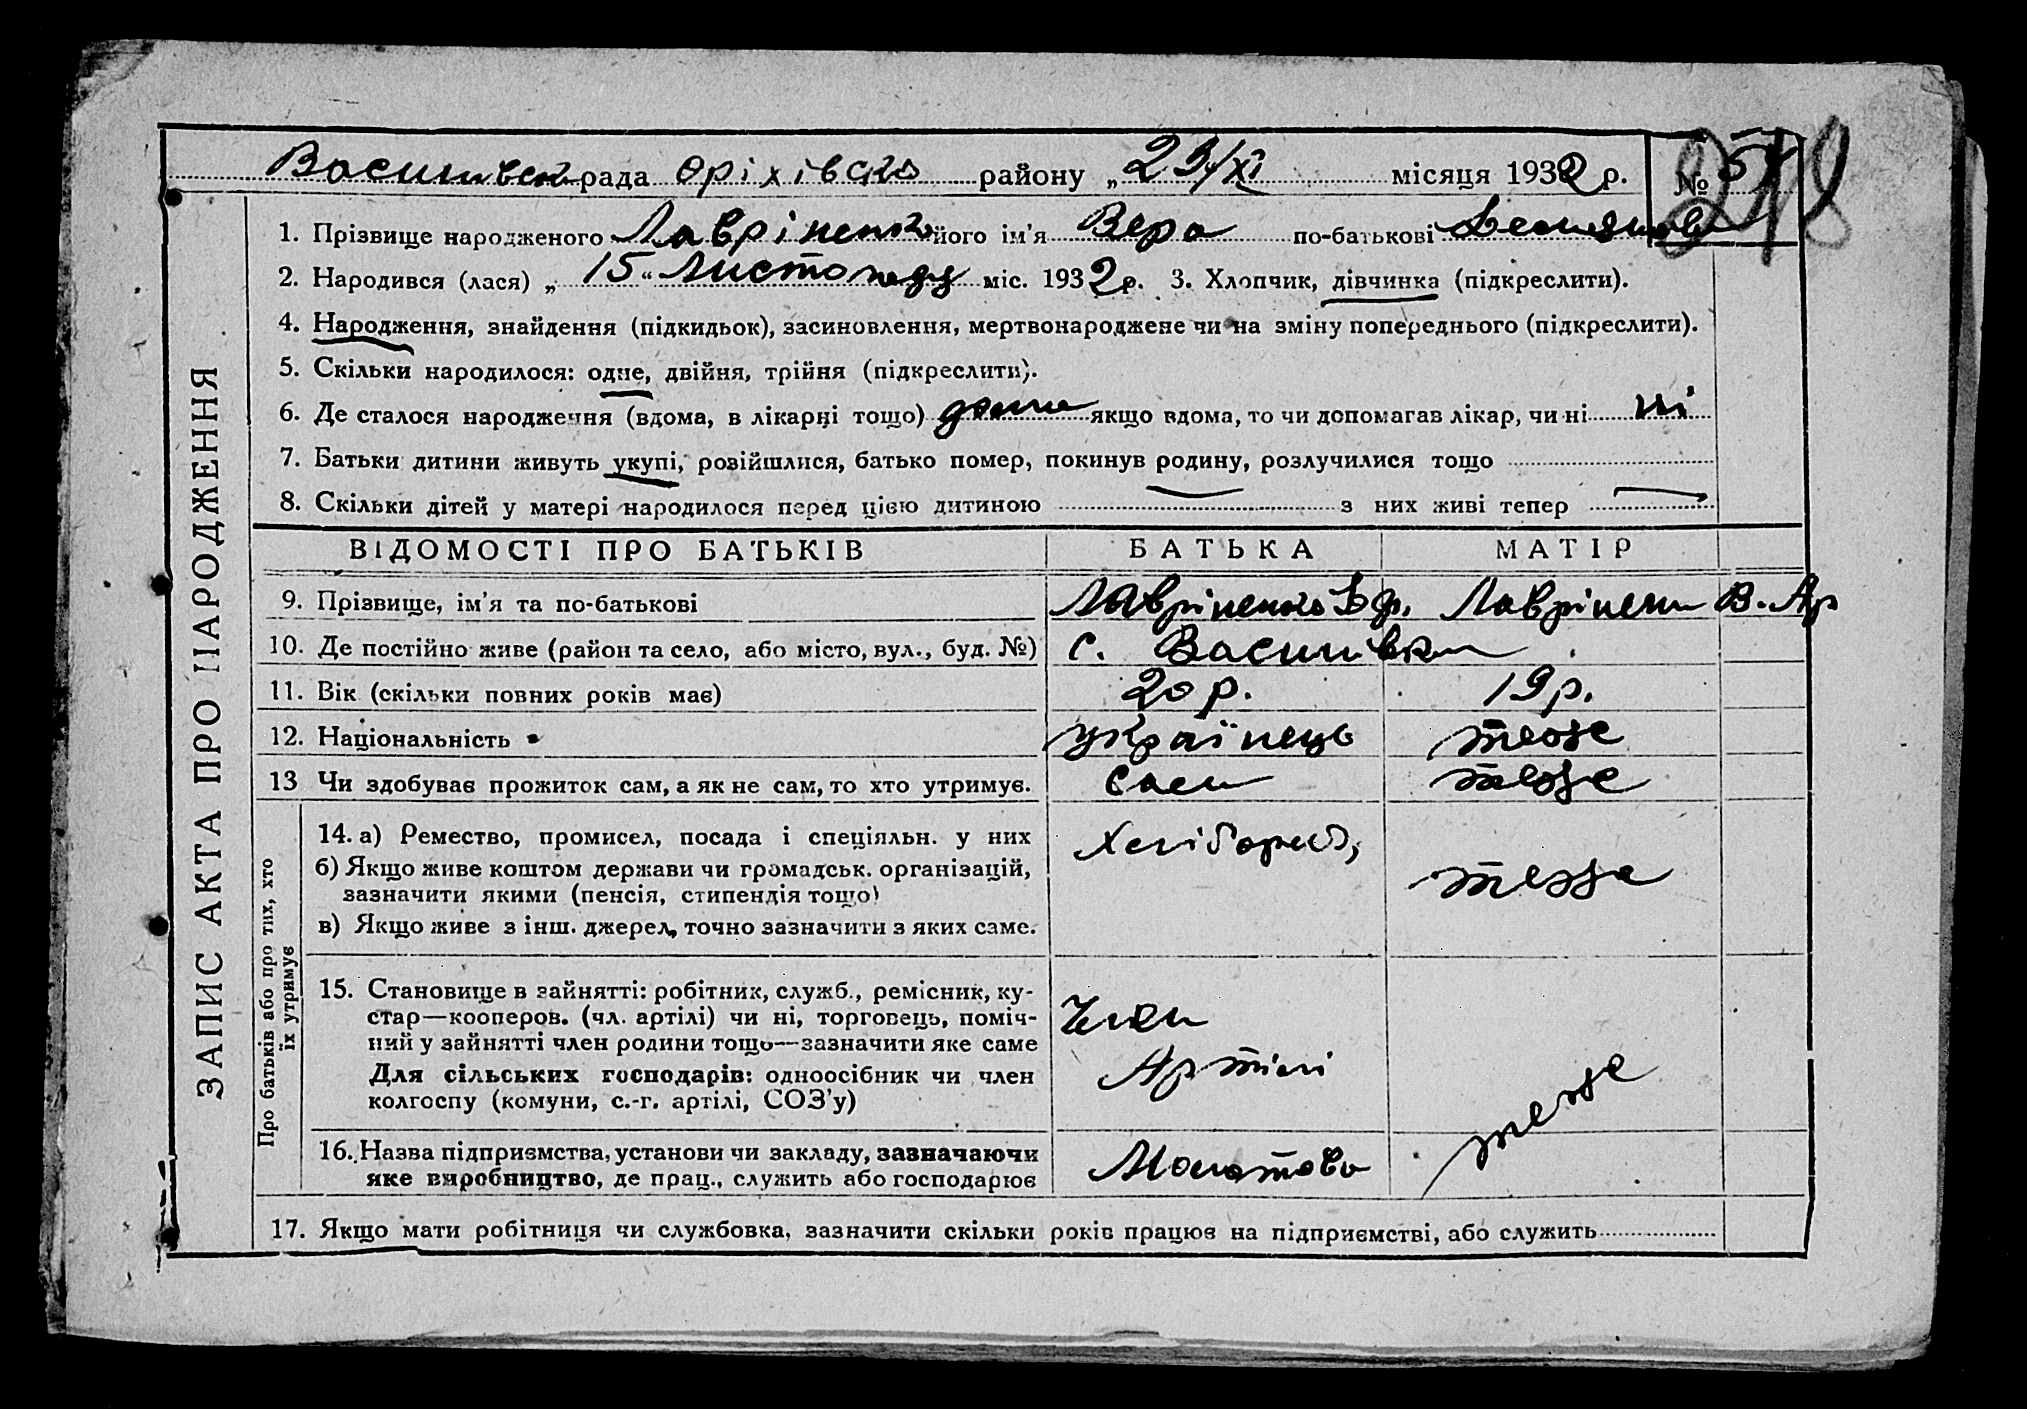 Василівск рада Оріхівсько району „ 23/XI місяця 1932 р. №
1. Прізвище народженого Лавріненко його ім'я Вера по-батькові
2. Народився (лася) „ 15 “ Листопаду міс. 1932 р. 3. Хлопчик, дівчинка (підкреслити).
4. Народження, знайдення (підкидьок), засиновлення, мертвонароджене чи на зміну попереднього (підкреслити).
5. Скільки народилося: одне, двійня, трійня (підкреслити).
6. Де сталося народження (вдома, в лікарні тощо) дома якщо вдома, то чи допомагав лікар, чи ні ні
7. Батьки дитини живуть укупі, розійшлися, батько помер, покинув родину, розлучилися тощо
8. Скільки дітей у матері народилося перед цією дитиною — з них живі тепер —
ЗАПИС АКТА ПРО НАРОДЖЕННЯ
ВІДОМОСТІ ПРО БАТЬКІВ БАТЬКА МАТІР
9. Прізвище, ім'я та по-батькові Лавріненко Лаврінен В. Ар
10. Де постійно живе (район та село, або місто, вул., буд. №) с. Василівка
11. Вік (скільки повних років має) 20 р. 19 р.
12. Національність українець теже
13 Чи здобуває прожиток сам, а як не сам, то хто утримує. сам теже
Про батьків або про тих, хто
їх утримує
14. а) Ремество, промисел, посада і спеціяльн. у них Хлібороб,
б) Якщо живе коштом держави чи громадськ. організацій,
зазначити якими (пенсія, стипендія тощо) теже
в) Якщо живе з інш. джерел, точно зазначити з яких саме.
15. Становище в зайнятті: робітник, служб., ремісник, ку-
стар—кооперов. (чл. артілі) чи ні, торговець, поміч- Член
ний у зайнятті член родини тощо—зазначити яке саме
Для сільських господарів: одноосібник чи член Артілі теже
колгоспу (комуни, с.-г. артілі, СОЗ'у)
16. Назва підприємства, установи чи закладу, зазначаючи Молотова
яке виробництво, де прац., служить або господарює
17. Якщо мати робітниця чи службовка, зазначити скільки років працює на підприємстві, або служить